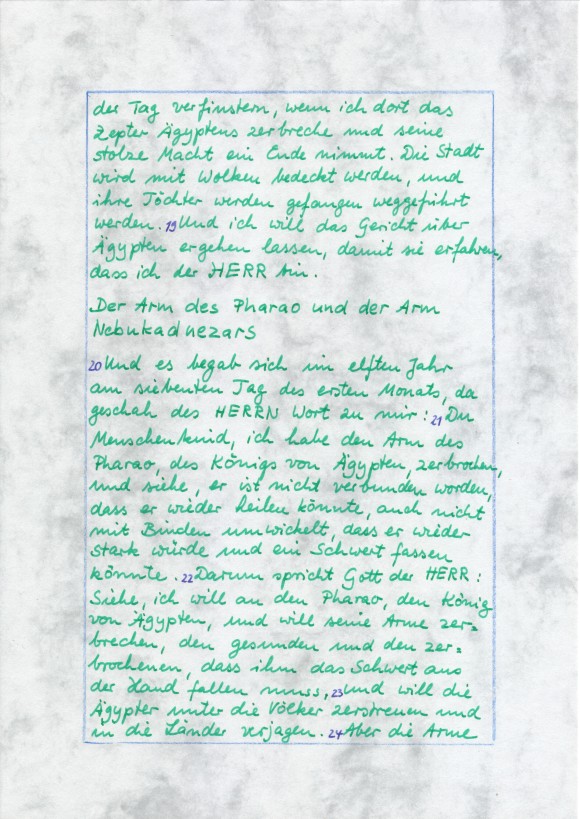 der Tag verfinstern, wenn ich dort das
Zepter Ägyptens zerbreche und seine
stolze Macht ein Ende nimmt. Die Stadt
wird mit Wolken bedeckt werden, und
ihre Töchter werden gefangen weggeführt
werden. 19 Und ich will das Gericht über
Ägypten ergehen lassen, damit sie erfahren,
dass ich der HERR bin.
Der Arm des Pharao und der Arm
Nebukadnezars
20 Und es begab sich im elften Jahr
am siebenten Tag des ersten Monats, da
geschah des HERRN Wort zu mir: 21 Du
Menschenkind, ich habe den Arm des
Pharao, des Königs von Ägypten, zerbrochen,
und siehe, er ist nicht verbunden worden,
dass er wieder heilen könnte, auch nicht
mit Binden umwickelt, dass er wieder
stark würde und ein Schwert fassen
könnte. 22 Darum spricht Gott der HERR:
Siehe, ich will an den Pharao, den König
von Ägypten, und will seine Arme zer=
brechen, den gesunden und den zer=
brochenen, dass ihm das Schwert aus
der Hand fallen muss, 23 und will die
Ägypter unter die Völker zerstreuen und
in die Länder verjagen. 24 Aber die Arme